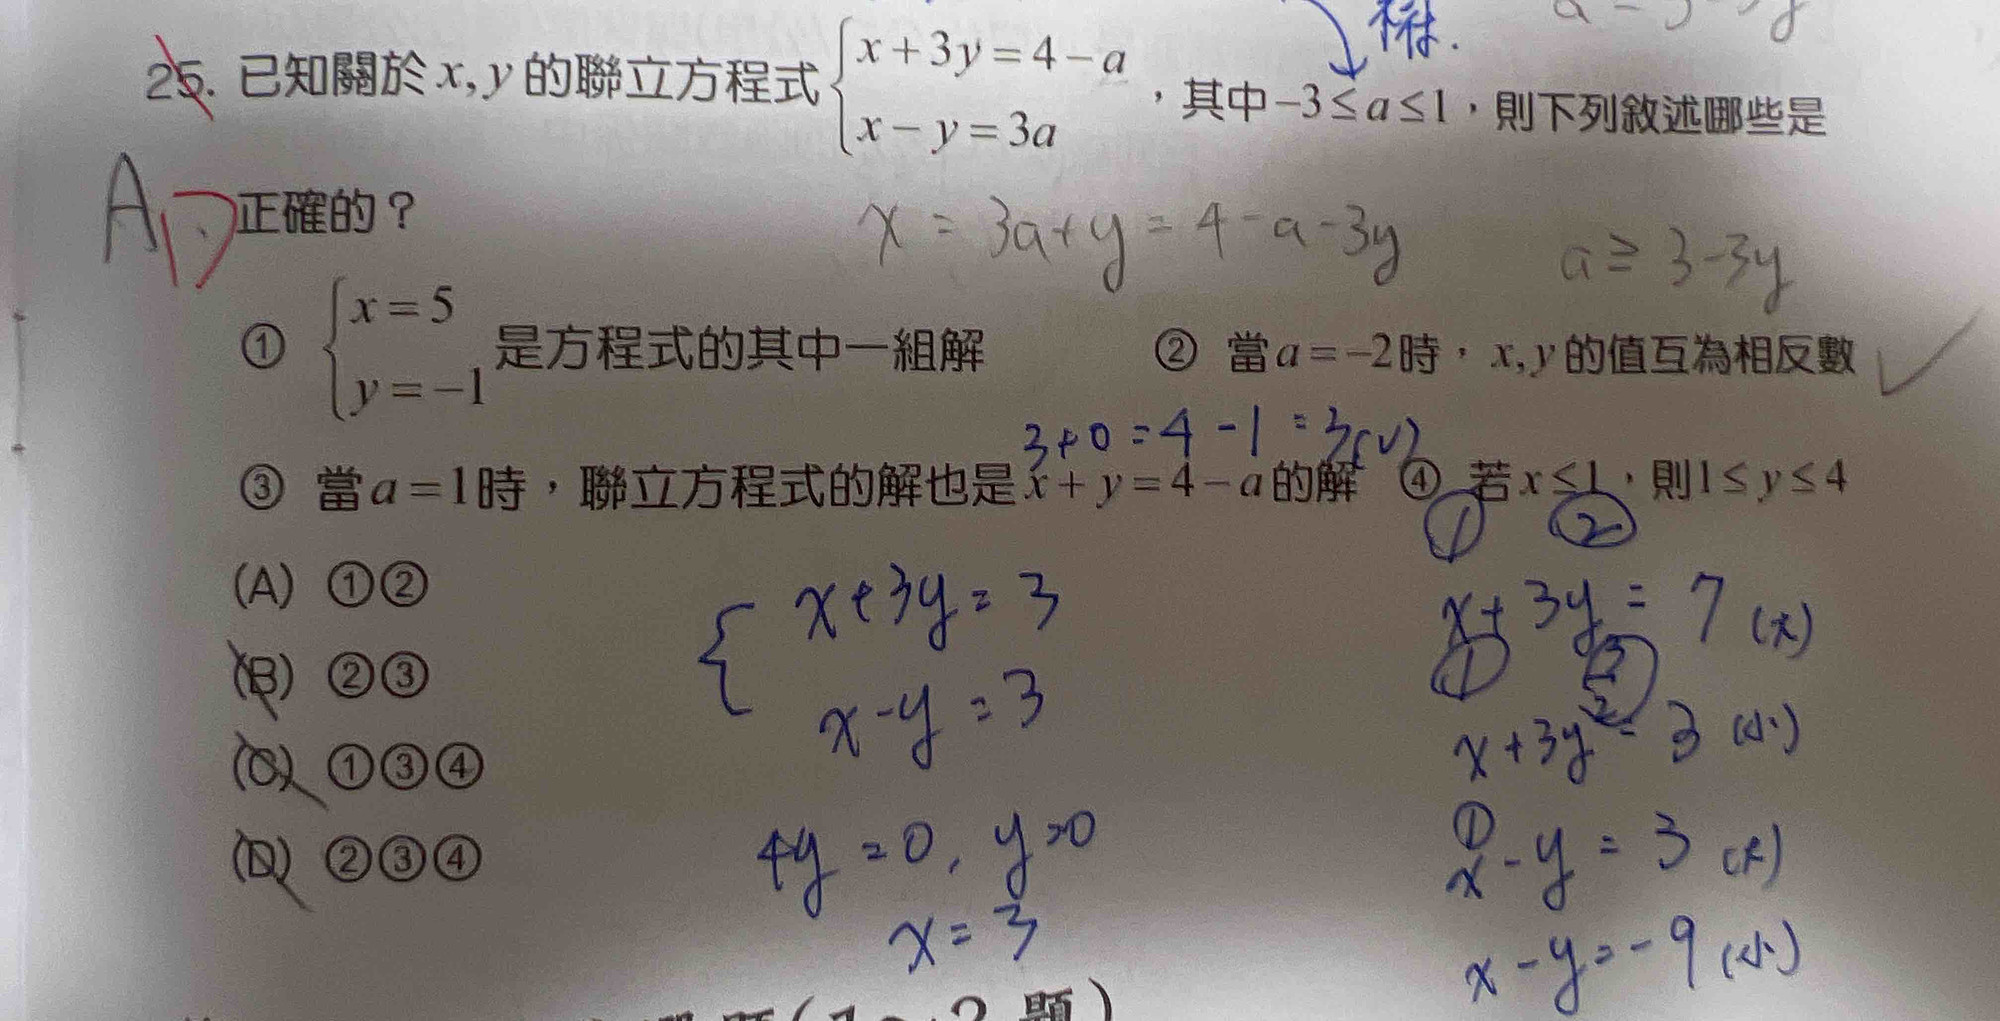 樹.
25. 已知關於 x, y 的聯立方程式 { x + 3y = 4 − a
x − y = 3a ，其中 −3 ≤ a ≤ 1，則下列敘述哪些是
A D 正確的？
x = 3a + y = 4 - a - 3y
a ≥ 3 - 3y
① { x = 5
y = −1 是方程式的其中一組解
② 當 a = −2 時，x, y 的值互為相反數 ✓
3 + 0 = 4 - 1 = 3 (v)
③ 當 a = 1 時，聯立方程式的解也是 x + y = 4 − a 的解 ④ 若 x ≤ 1，則 1 ≤ y ≤ 4
① ②
(A) ①②
(B) ②③
(C) ①③④
(D) ②③④
{ x + 3y = 3
x - y = 3
4y = 0, y = 0
x = 3
x + 3y = 7 (大)
①
x + 3y = 3 (小)
①
x - y = 3 (大)
x - y = -9 (小)